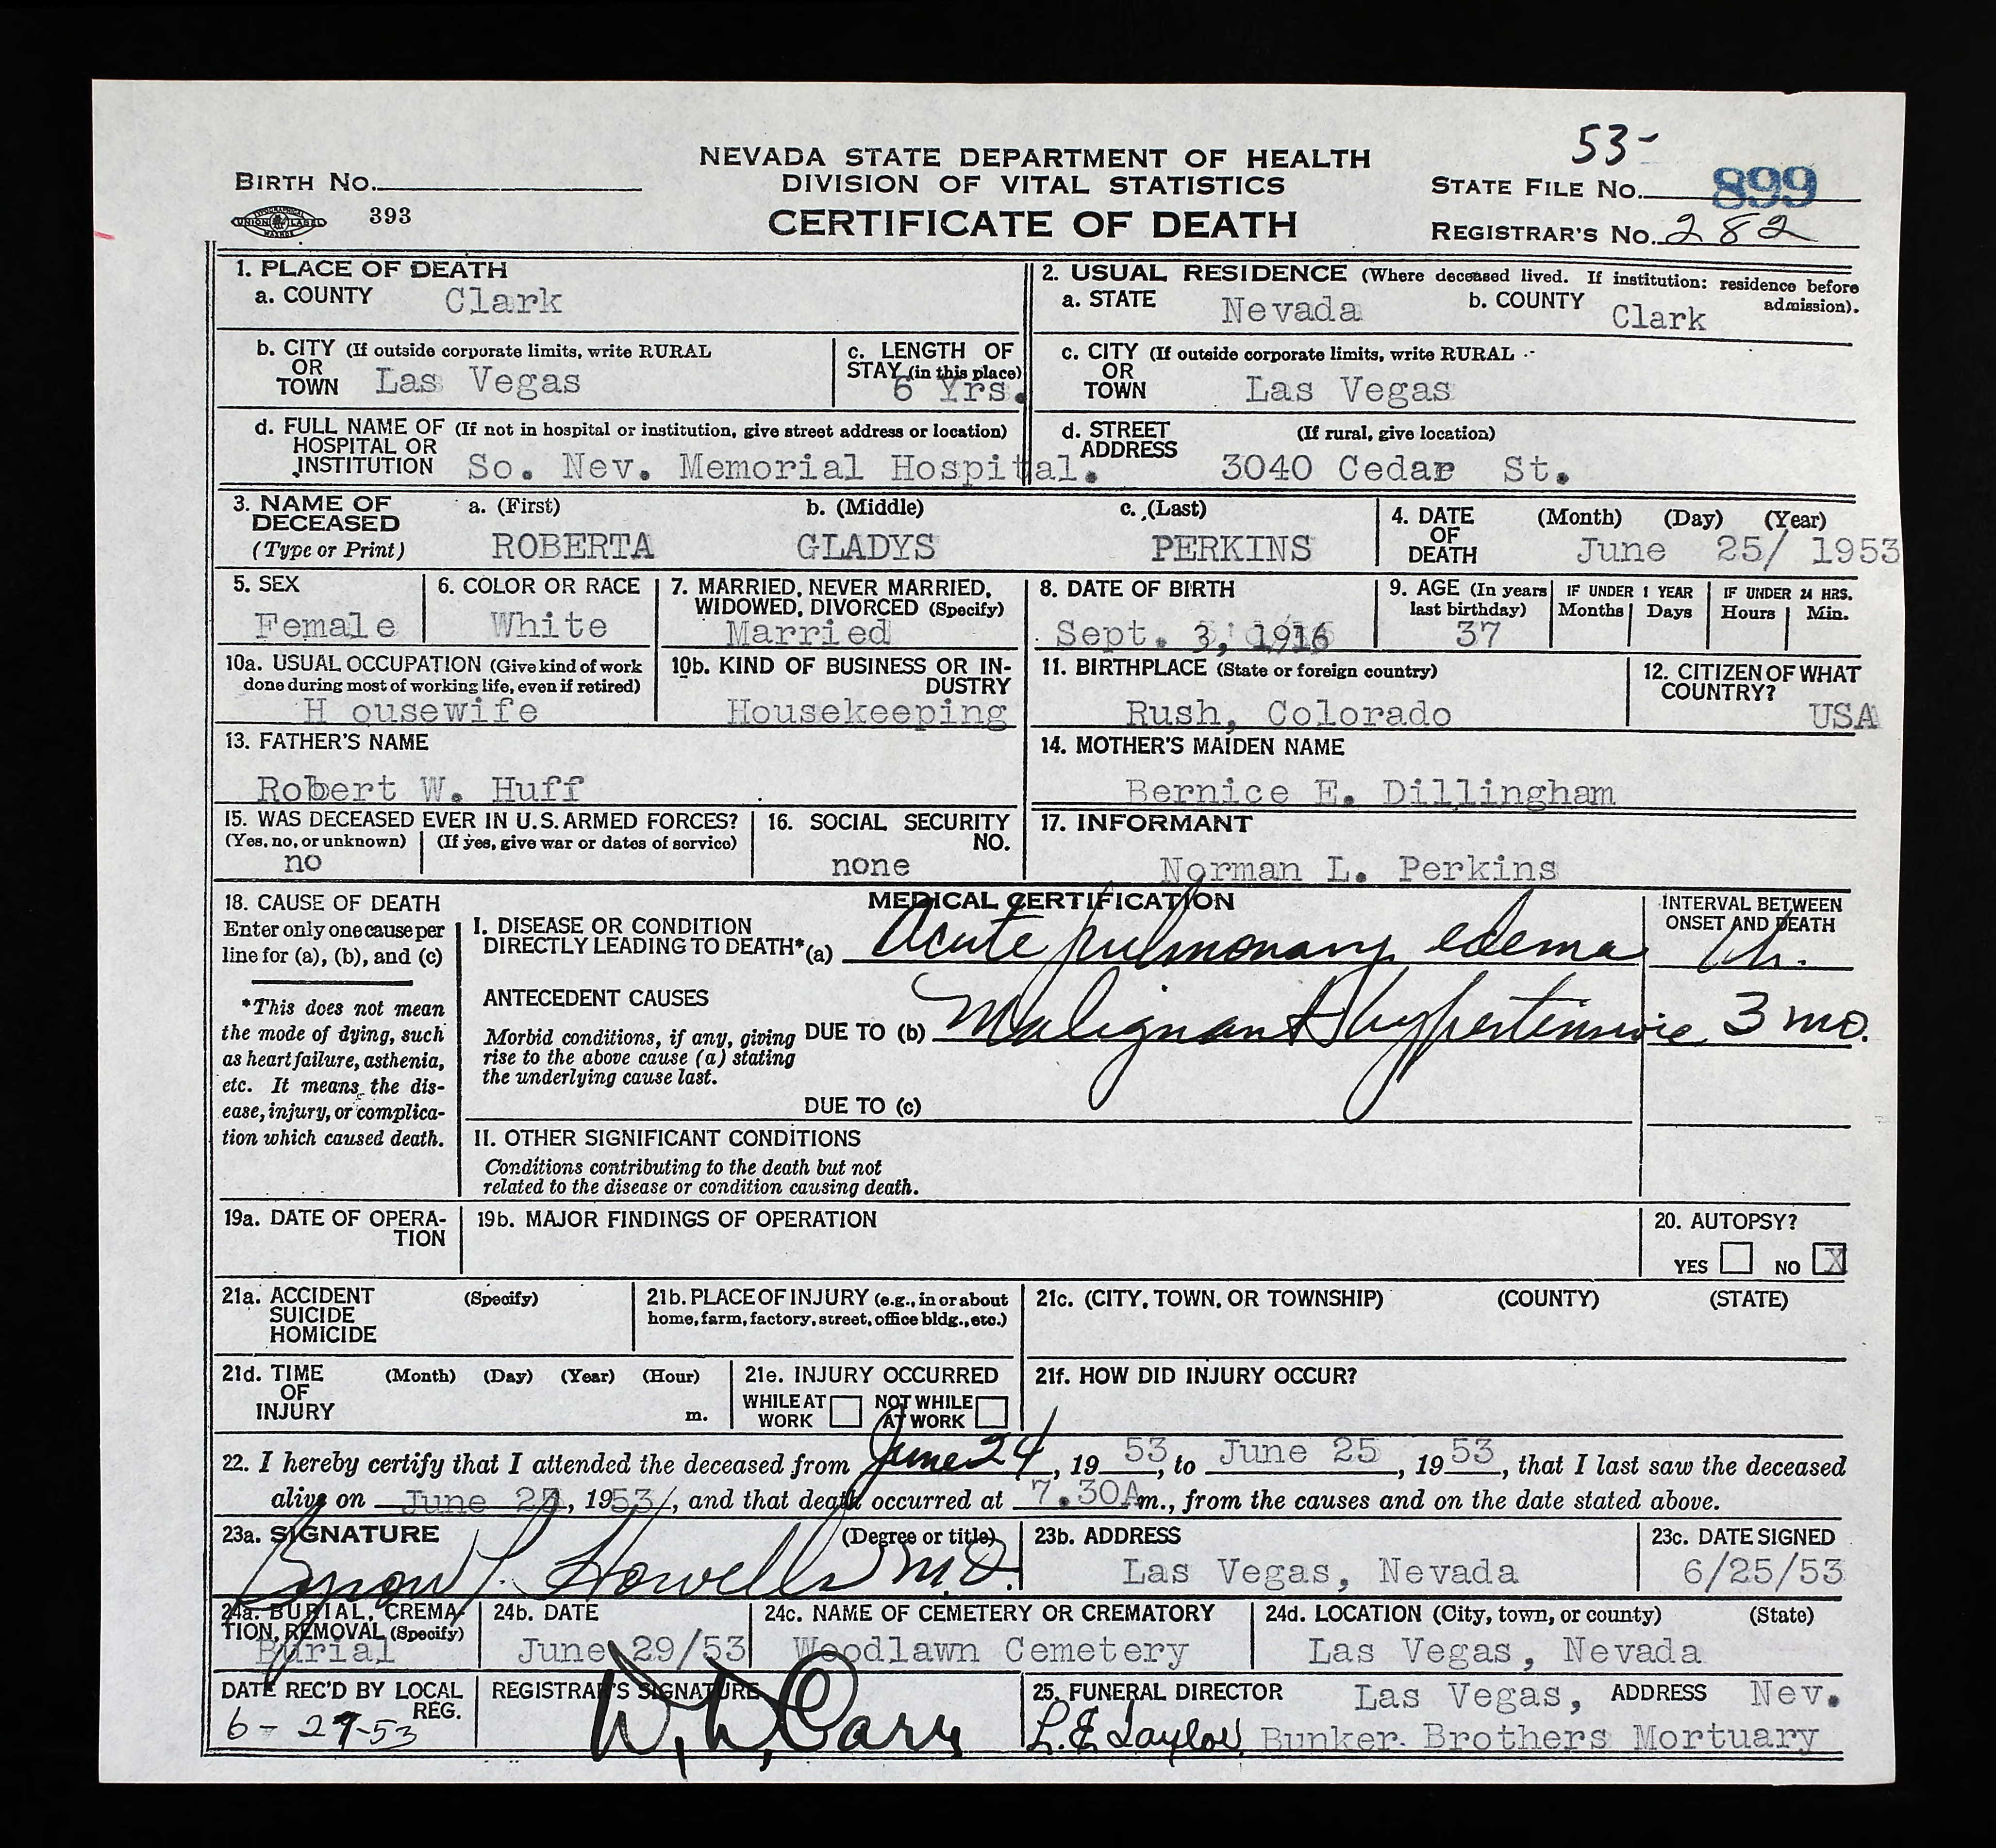 53-
NEVADA STATE DEPARTMENT OF HEALTH
BIRTH No.
DIVISION OF VITAL STATISTICS
STATE FILE No. 899
393
CERTIFICATE OF DEATH
REGISTRAR'S No. 282
1. PLACE OF DEATH
a. COUNTY Clark
2. USUAL RESIDENCE (Where deceased lived. If institution: residence before admission).
a. STATE Nevada b. COUNTY Clark
b. CITY (If outside corporate limits, write RURAL
OR
TOWN Las Vegas
c. LENGTH OF
STAY (in this place)
6 Yrs.
c. CITY (If outside corporate limits, write RURAL
OR
TOWN Las Vegas
d. FULL NAME OF (If not in hospital or institution, give street address or location)
HOSPITAL OR
INSTITUTION So. Nev. Memorial Hospital.
d. STREET (If rural, give location)
ADDRESS 3040 Cedar St.
3. NAME OF
DECEASED
(Type or Print)
a. (First) b. (Middle) c. (Last)
ROBERTA GLADYS PERKINS
4. DATE (Month) (Day) (Year)
OF
DEATH June 25/ 1953
5. SEX
Female
6. COLOR OR RACE
White
7. MARRIED, NEVER MARRIED,
WIDOWED, DIVORCED (Specify)
Married
8. DATE OF BIRTH
Sept. 3, 1916
9. AGE (In years
last birthday)
37
IF UNDER 1 YEAR
Months Days
IF UNDER 24 HRS.
Hours Min.
10a. USUAL OCCUPATION (Give kind of work
done during most of working life, even if retired)
H ousewife
10b. KIND OF BUSINESS OR IN-
DUSTRY
Housekeeping
11. BIRTHPLACE (State or foreign country)
Rush, Colorado
12. CITIZEN OF WHAT
COUNTRY?
USA
13. FATHER'S NAME
Robert W. Huff
14. MOTHER'S MAIDEN NAME
Bernice E. Dillingham
15. WAS DECEASED EVER IN U.S. ARMED FORCES?
(Yes, no, or unknown) (If yes, give war or dates of service)
no
16. SOCIAL SECURITY
NO.
none
17. INFORMANT
Norman L. Perkins
18. CAUSE OF DEATH
Enter only one cause per
line for (a), (b), and (c)
*This does not mean
the mode of dying, such
as heart failure, asthenia,
etc. It means the dis-
ease, injury, or complica-
tion which caused death.
MEDICAL CERTIFICATION
I. DISEASE OR CONDITION
DIRECTLY LEADING TO DEATH* (a) Acute pulmonary edema
INTERVAL BETWEEN
ONSET AND DEATH
1h.
ANTECEDENT CAUSES
Morbid conditions, if any, giving
rise to the above cause (a) stating
the underlying cause last.
DUE TO (b) Malignant hypertensive 3 mo.
DUE TO (c)
II. OTHER SIGNIFICANT CONDITIONS
Conditions contributing to the death but not
related to the disease or condition causing death.
19a. DATE OF OPERA-
TION
19b. MAJOR FINDINGS OF OPERATION
20. AUTOPSY?
YES NO X
21a. ACCIDENT (Specify)
SUICIDE
HOMICIDE
21b. PLACE OF INJURY (e.g., in or about
home, farm, factory, street, office bldg., etc.)
21c. (CITY, TOWN, OR TOWNSHIP) (COUNTY) (STATE)
21d. TIME (Month) (Day) (Year) (Hour)
OF
INJURY m.
21e. INJURY OCCURRED
WHILE AT
WORK
NOT WHILE
AT WORK
21f. HOW DID INJURY OCCUR?
22. I hereby certify that I attended the deceased from June 24, 19 53, to June 25, 19 53, that I last saw the deceased
alive on June , 1953, and that death occurred at 7.30A m., from the causes and on the date stated above.
23a. SIGNATURE (Degree or title)
Byron L. Howells M.D.
23b. ADDRESS
Las Vegas, Nevada
23c. DATE SIGNED
6/25/53
24a. BURIAL, CREMA-
TION, REMOVAL (Specify)
Burial
24b. DATE
June 29/53
24c. NAME OF CEMETERY OR CREMATORY
Woodlawn Cemetery
24d. LOCATION (City, town, or county) (State)
Las Vegas, Nevada
DATE REC'D BY LOCAL
REG.
6-29-53
REGISTRAR'S SIGNATURE
25. FUNERAL DIRECTOR Las Vegas, ADDRESS Nev.
L.E. Taylor Bunker Brothers Mortuary